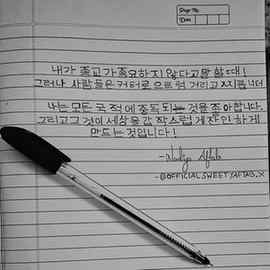 Page No.
Date
내가 종교가 중요하지 않다고 말할 때!
그러나 사람들은 커터로 으르렁 거리고 지키니다
나는 모든 국적에 중독되는 것을 좋아합니다.
그리고 그것이 세상을 갑 작스럽게 잔인하게
만드는 것입니다!
- Nadiya Aftab
- @OFFICIALSWEETYAFTAB.X